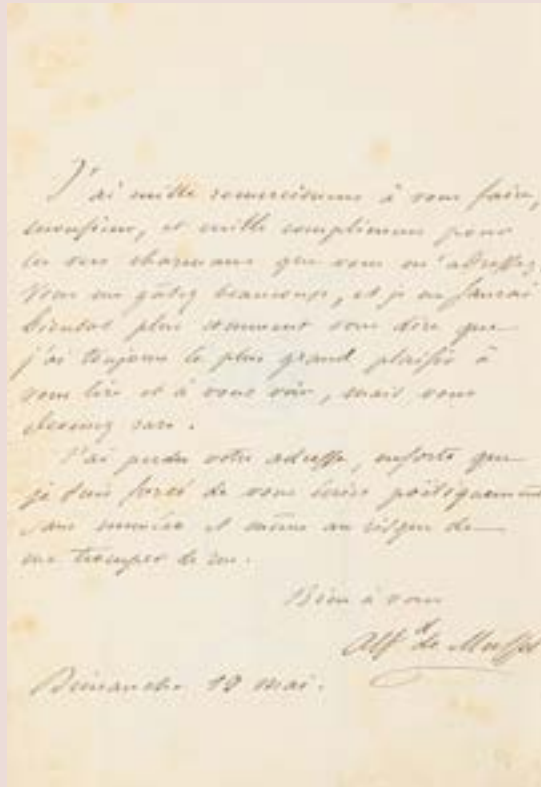 J'ai mille remerciemens à vous faire,
monsieur, et mille complimens pour
les vers charmans que vous m'adressez.
Vous me gâtez beaucoup, et je ne saurai
bientot plus comment vous dire que
j'ai toujours le plus grand plaisir à
vous lire et à vous voir, mais vous
devenez rare.
J'ai perdu votre adresse, ensorte que
je suis forcé de vous écrire poétiquement
sans numéro et même au risque de
me tromper de rue.
Bien à vous
Alf^d de Musset
Dimanche 19 mai.